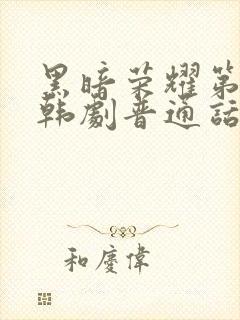 黑暗荣耀第
韩剧普通话
和庆伟